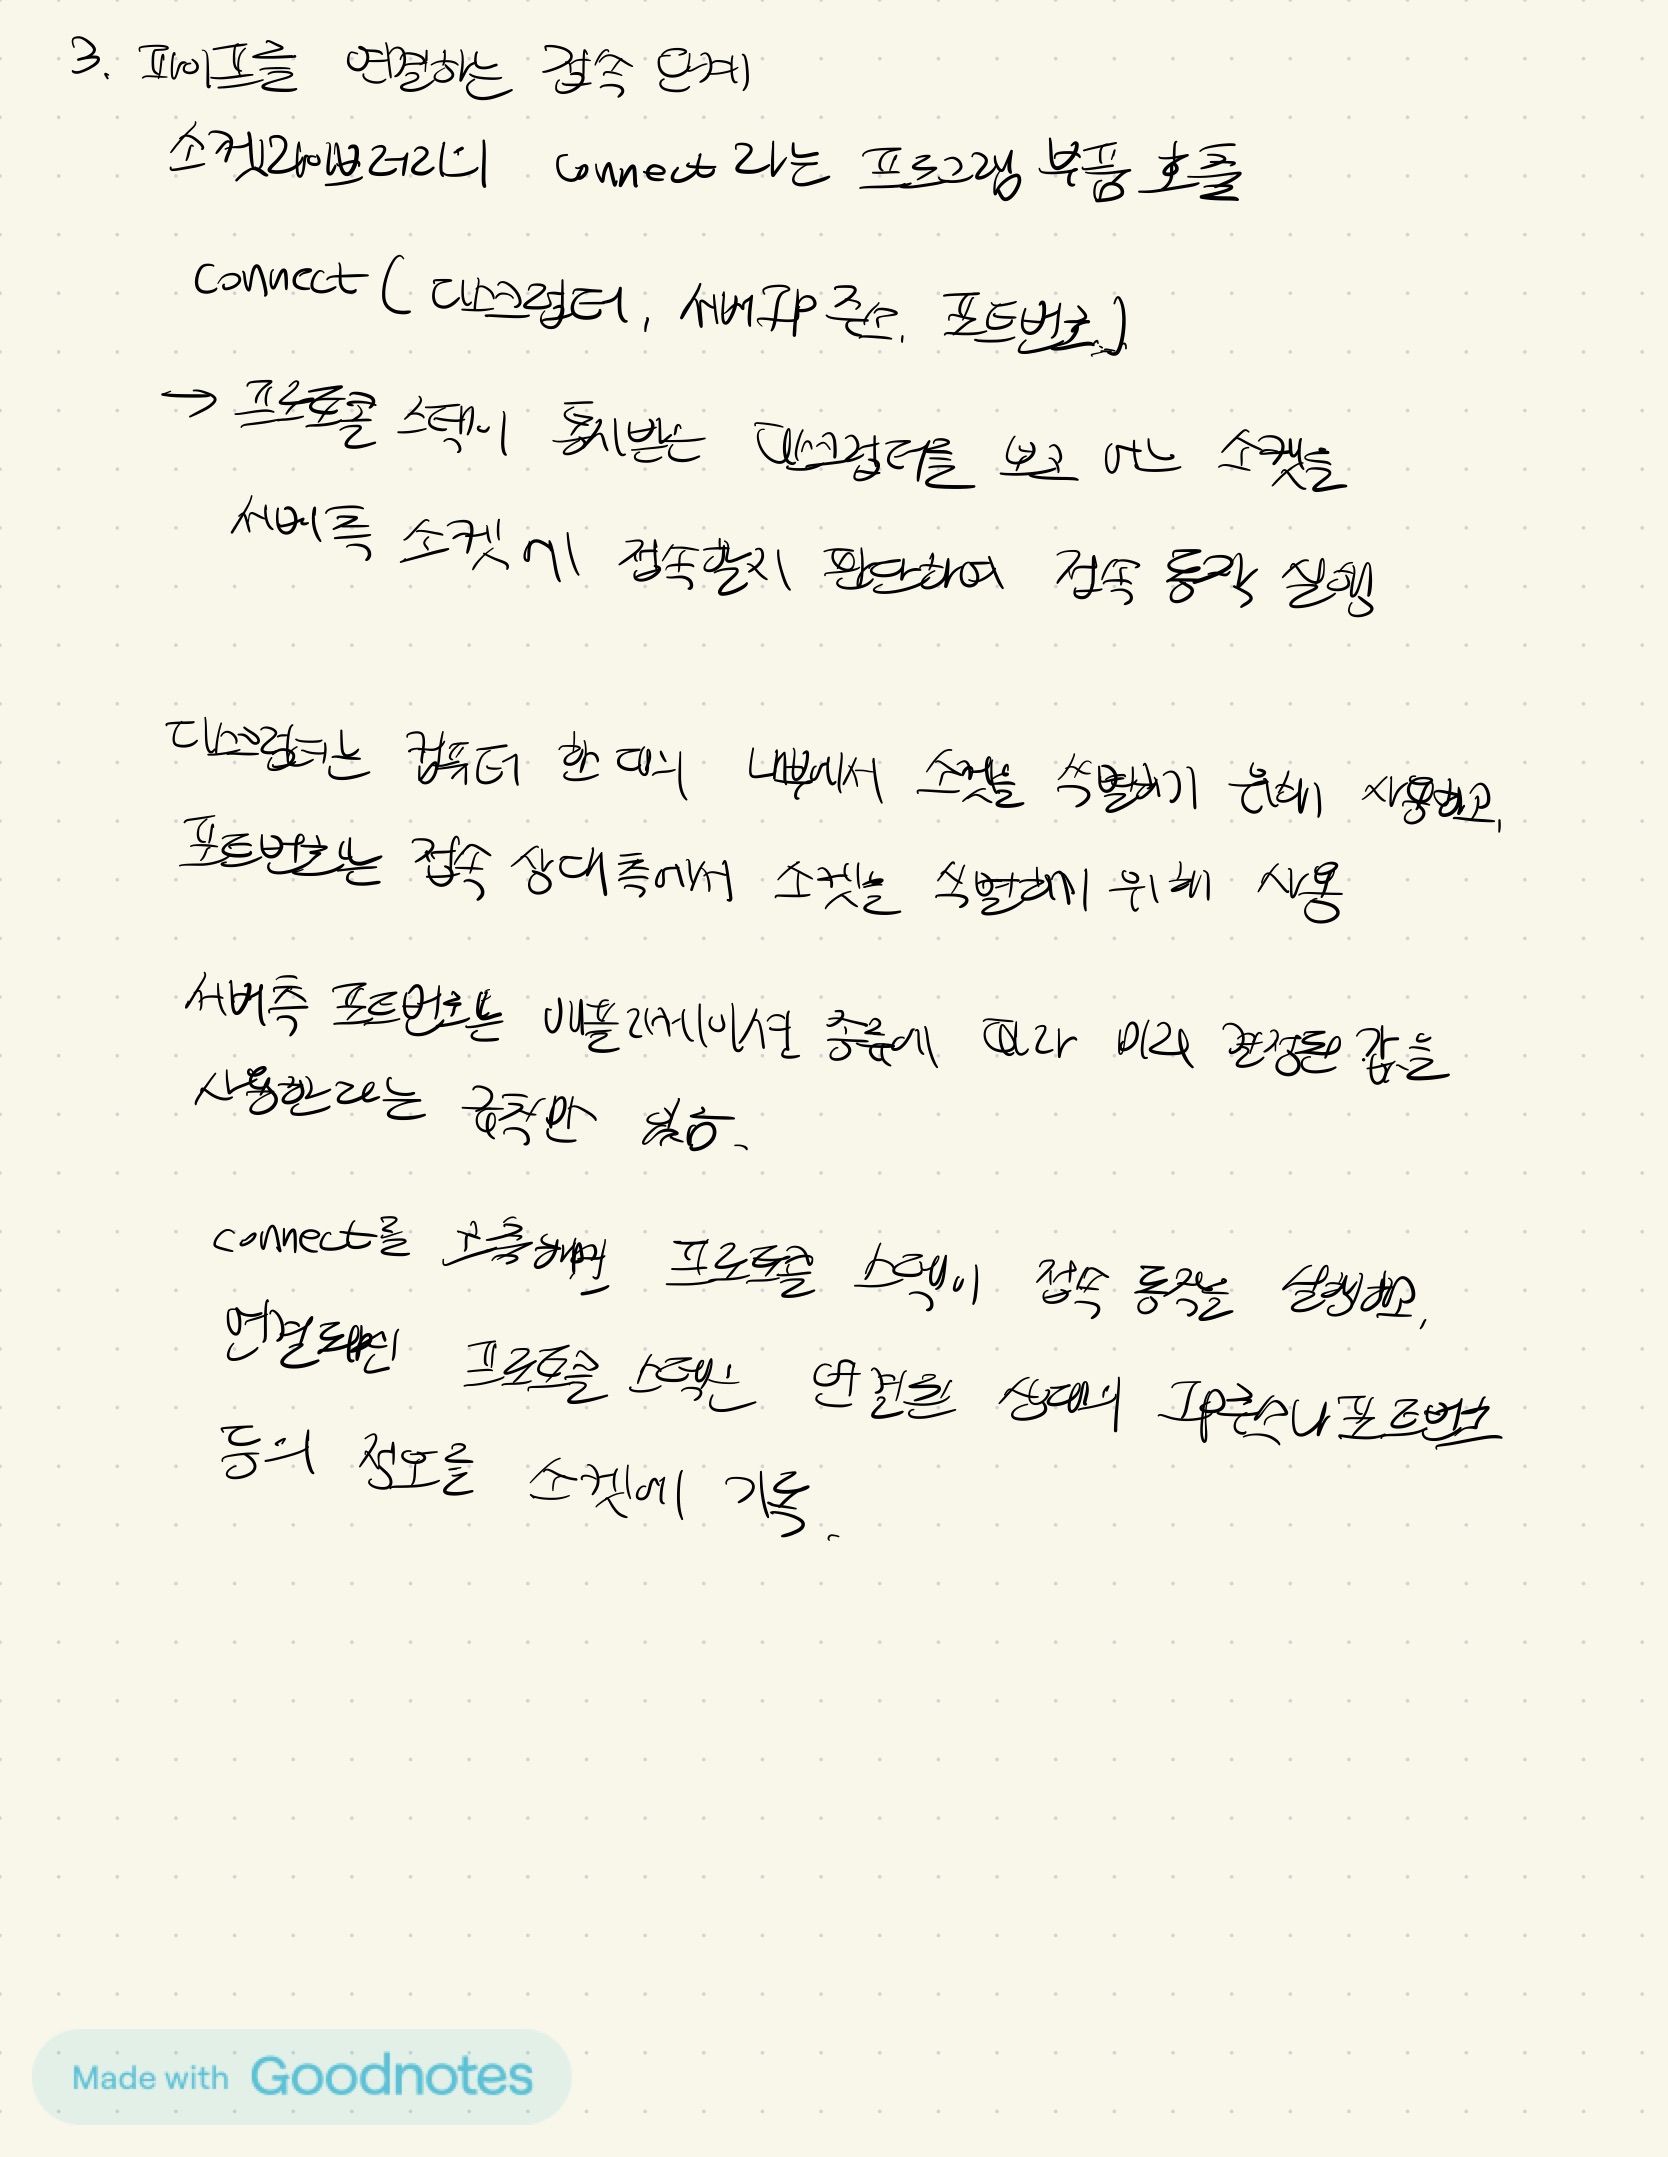 3. 파이프를 연결하는 접속 단계
소켓라이브러리의 connect 라는 프로그램 부품 호출
connect ( 디스크립터, 서버IP 주소, 포트번호 )
→ 프로토콜 스택이 통지받은 디스크립터를 보고 어느 소켓을
서버측 소켓에 접속할지 판단하여 접속 동작 실행
디스크립터는 컴퓨터 한 대의 내부에서 소켓을 식별하기 위해 사용하고,
포트번호는 접속 상대측에서 소켓을 식별하기 위해 사용
서버측 포트번호는 애플리케이션 종류에 따라 미리 결정된 값을
사용한다라는 규칙만 있음.
connect를 호출하면 프로토콜 스택이 접속 동작을 실행하고,
연결되면 프로토콜 스택은 연결된 상대의 IP주소나 포트번호
등의 정보를 소켓에 기록.
Made with Goodnotes